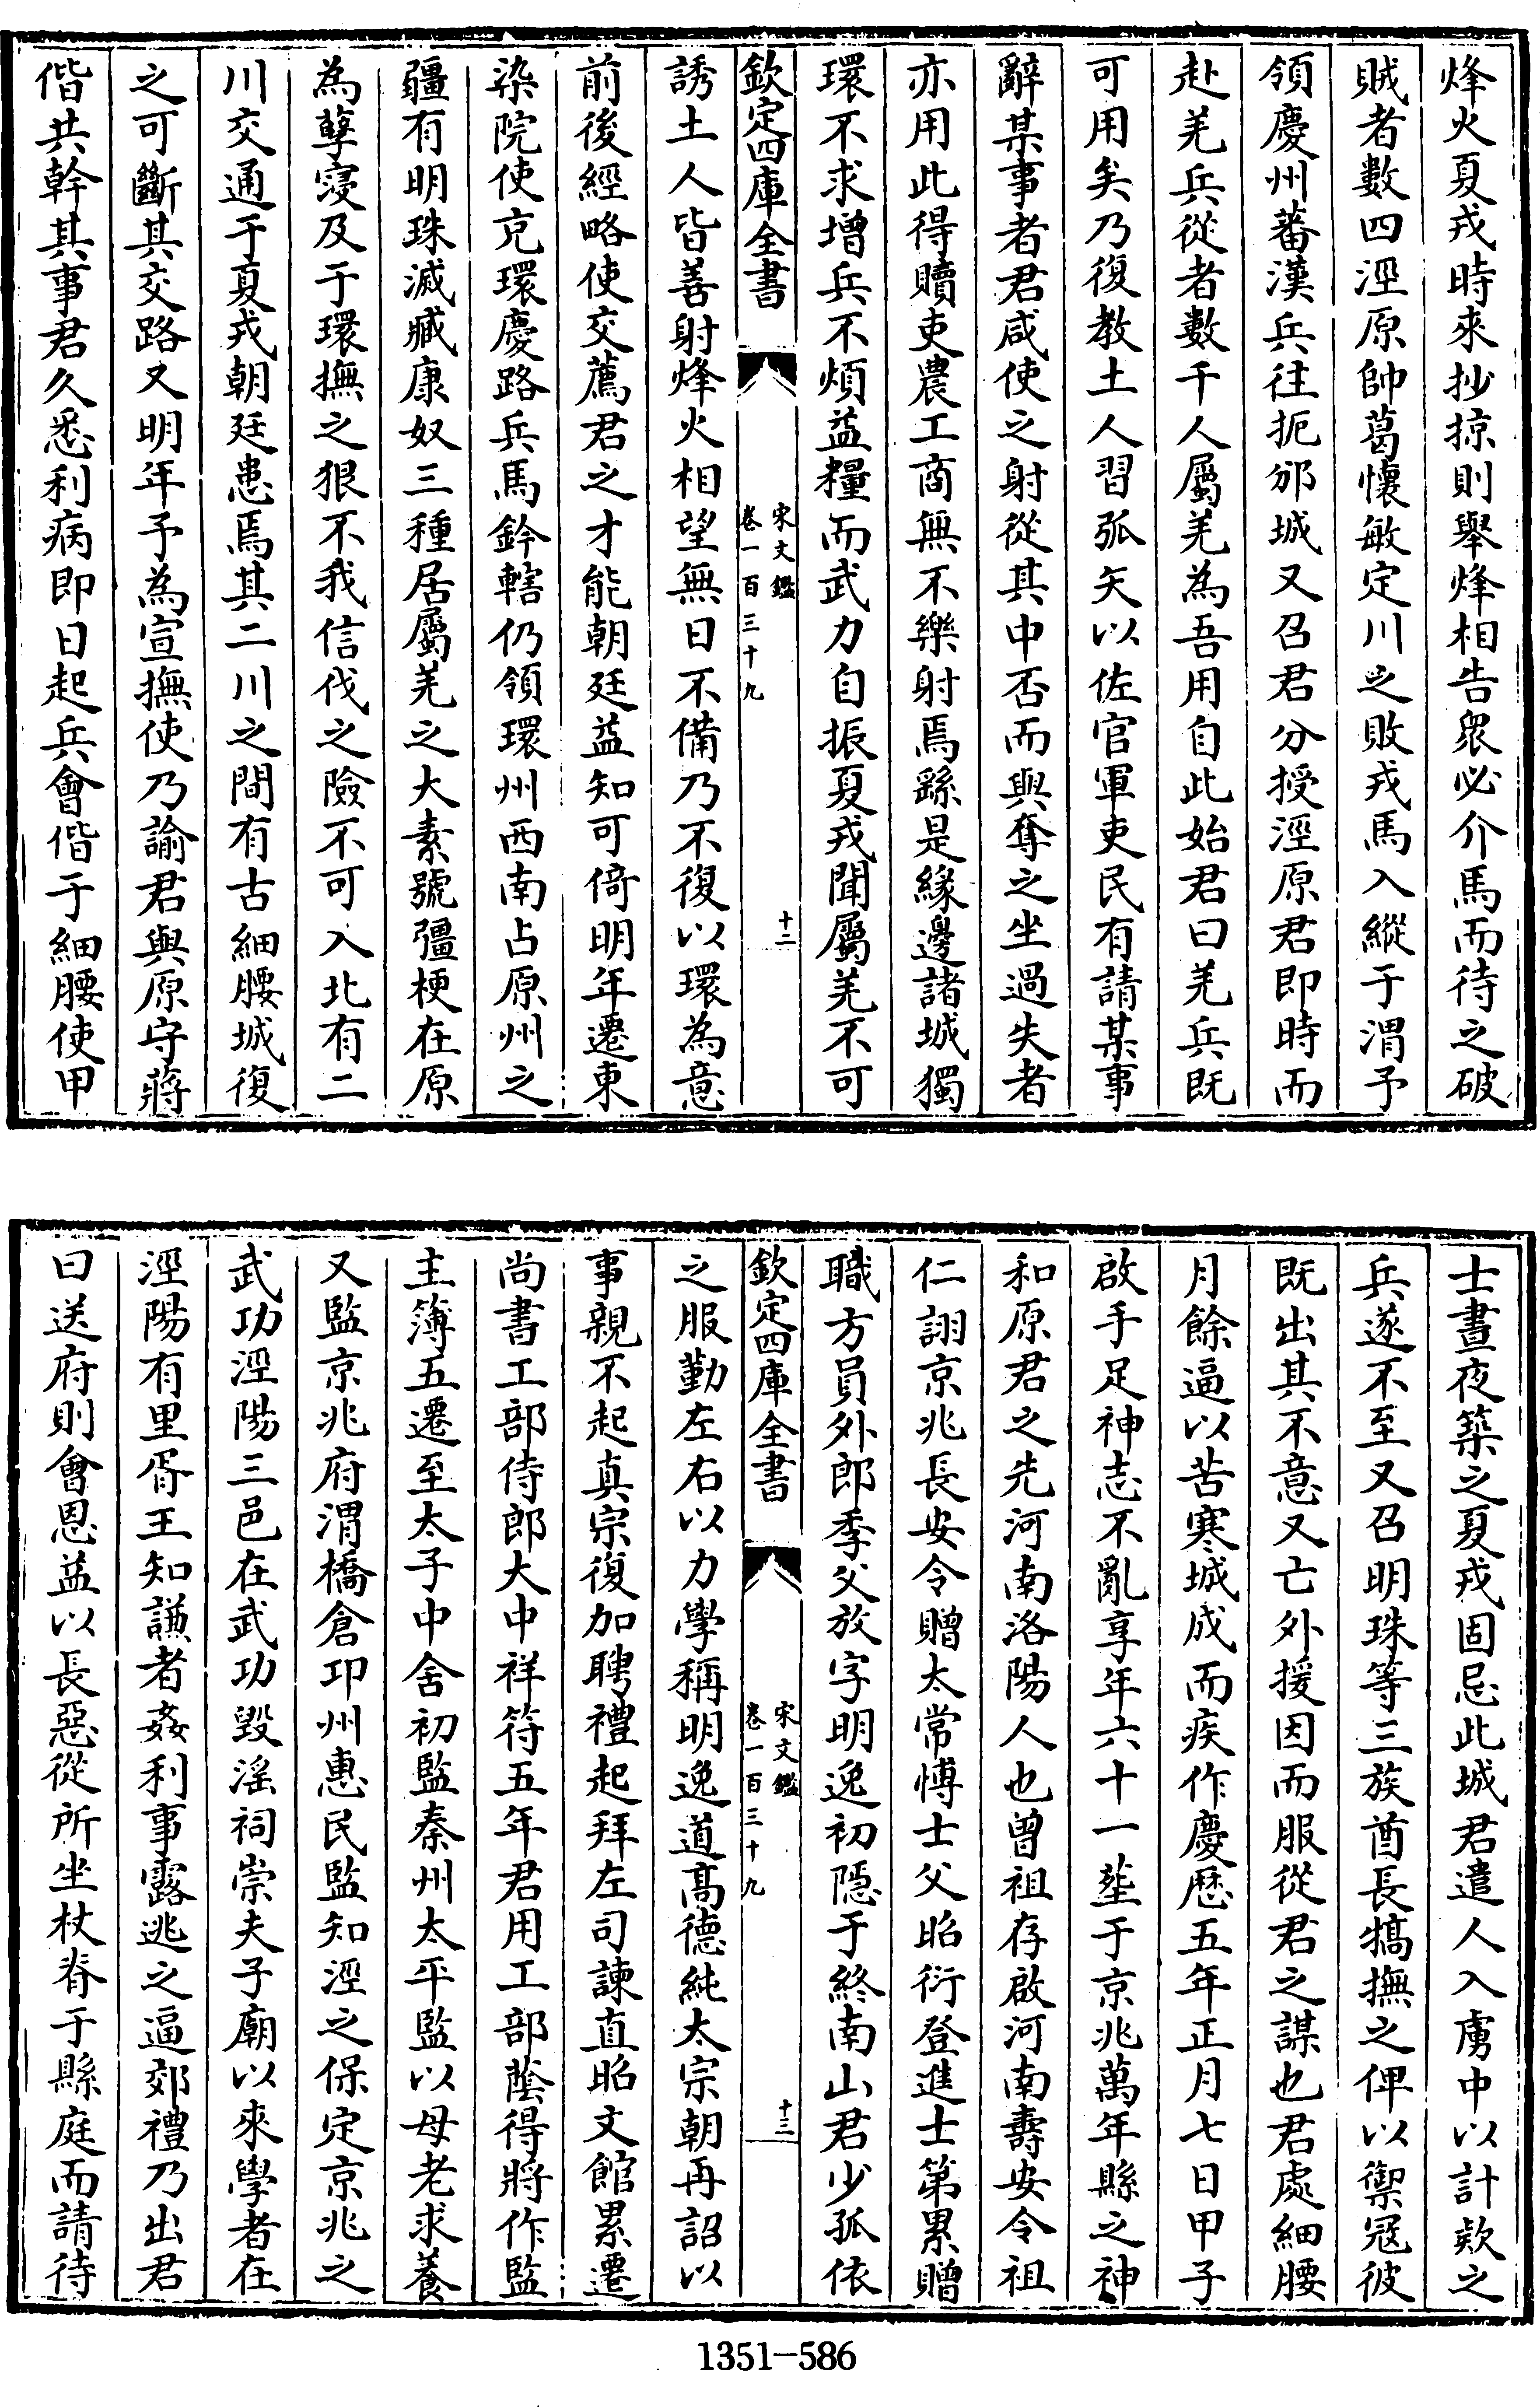 烽火夏戎時來抄掠則舉烽相告衆必介馬而待之破
賊者數四涇原帥葛懷敏定川之敗戎馬入縱于渭予
領慶州蕃漢兵往扼邠城又召君分授涇原君即時而
赴羌兵從者數千人屬羌為吾用自此始君曰羌兵既
可用矣乃復教土人習弧矢以佐官軍吏民有請某事
辭某事者君咸使之射從其中否而與奪之坐過失者
亦用此得贖吏農工商無不樂射焉繇是緣邊諸城獨
環不求增兵不煩益糧而武力自振夏戎聞屬羌不可
欽定四庫全書
宋文鑑
卷一百三十九
十二
誘土人皆善射烽火相望無日不備乃不復以環為意
前後經略使交薦君之才能朝廷益知可倚明年遷東
染院使充環慶路兵馬鈐轄仍領環州西南占原州之
疆有明珠滅臧康奴三種居屬羌之大素號彊梗在原
為孽寖及于環撫之狠不我信伐之險不可入北有二
川交通于夏戎朝廷患焉其二川之間有古細腰城復
之可斷其交路又明年予為宣撫使乃諭君與原守蔣
偕共幹其事君久悉利病即日起兵會偕于細腰使甲
士晝夜築之夏戎固忌此城君遣人入虜中以計欵之
兵遂不至又召明珠等三族酋長犒撫之俾以禦冦彼
既出其不意又亡外援因而服從君之謀也君處細腰
月餘逼以苦寒城成而疾作慶厯五年正月七日甲子
啟手足神志不亂享年六十一塟于京兆萬年縣之神
和原君之先河南洛陽人也曾祖存啟河南壽安令祖
仁詡京兆長安令贈太常愽士父昭衍登進士第累贈
職方員外郎季父放字明逸初隱于終南山君少孤依
欽定四庫全書
宋文鑑
卷一百三十九
十三
之服勤左右以力學稱明逸道高德純太宗朝再詔以
事親不起真宗復加聘禮起拜左司諫直昭文館累遷
尚書工部侍郎大中祥符五年君用工部蔭得將作監
主簿五遷至太子中舍初監秦州太平監以母老求養
又監京兆府渭橋倉邛州惠民監知涇之保定京兆之
武功涇陽三邑在武功毀滛祠崇夫子廟以來學者在
涇陽有里胥王知謙者姦利事露逃之逼郊禮乃出君
曰送府則會恩益以長惡從所坐杖脊于縣庭而請待
1351-586